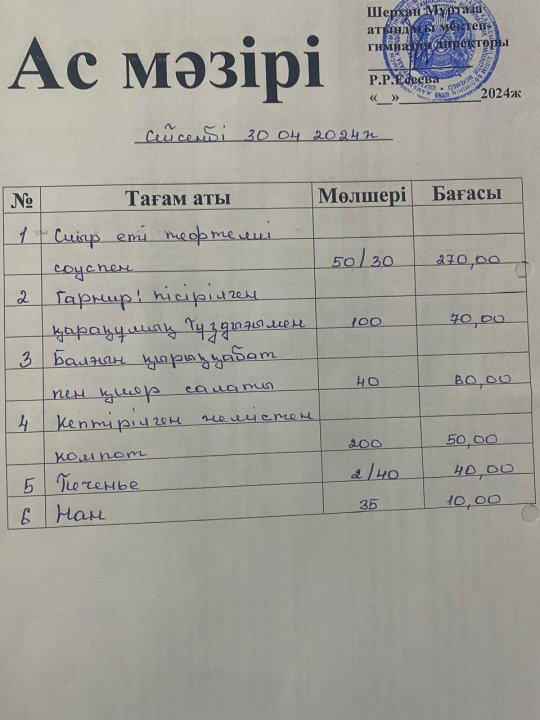 Шерхан Мұртаза
атындағы мектеп-
гимназия директоры
Р.Р.Есеева
«__»____________2024ж
Ас мәзірі
Сейсенбі 30 04 2024ж
№ Тағам аты Мөлшері Бағасы
1 Сиыр еті тефтелиі
соуспен 50/30 270,00
2 Гарнир: пісірілген
қарақұмық тұздығымен 100 70,00
3 Балғын қырыққабат
пен қияр салаты 40 80,00
4 Кептірілген жемістен
компот 200 50,00
5 Печенье 2/40 40,00
6 Нан 35 10,00